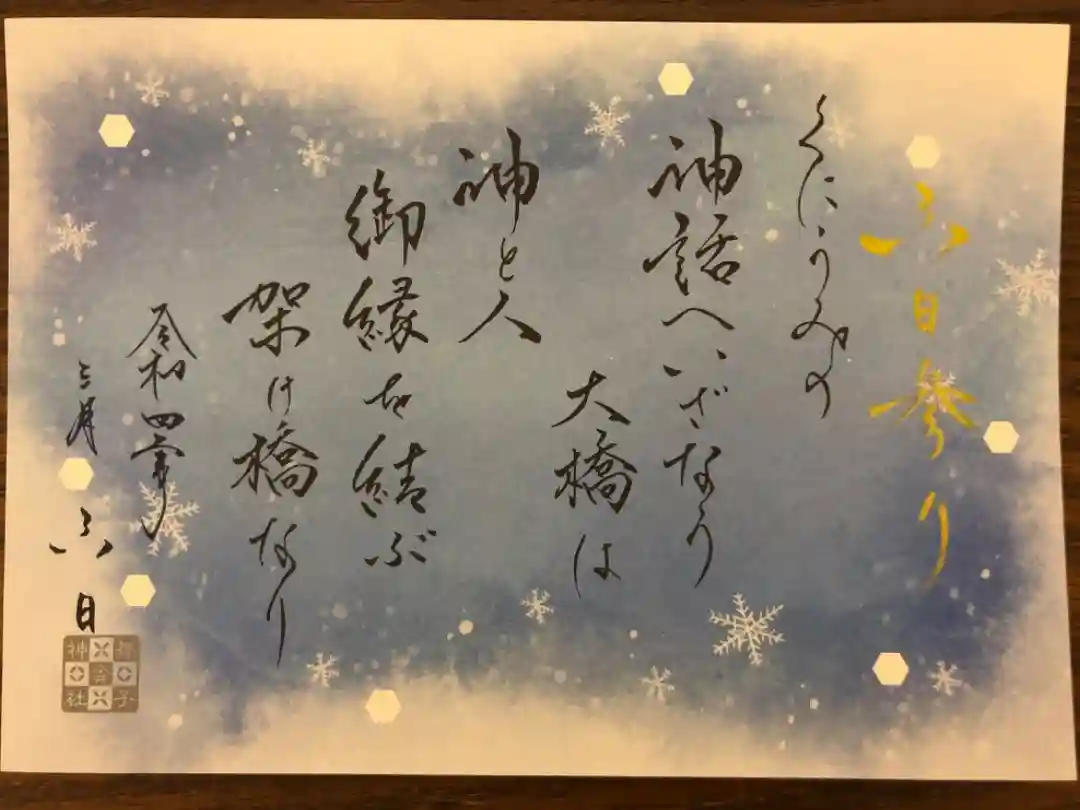 六日参り
くにうみの
神話へいざなう
大橋は
神と人
御縁を結ぶ
架け橋なり
令和四年
三月六日
舞子六神社